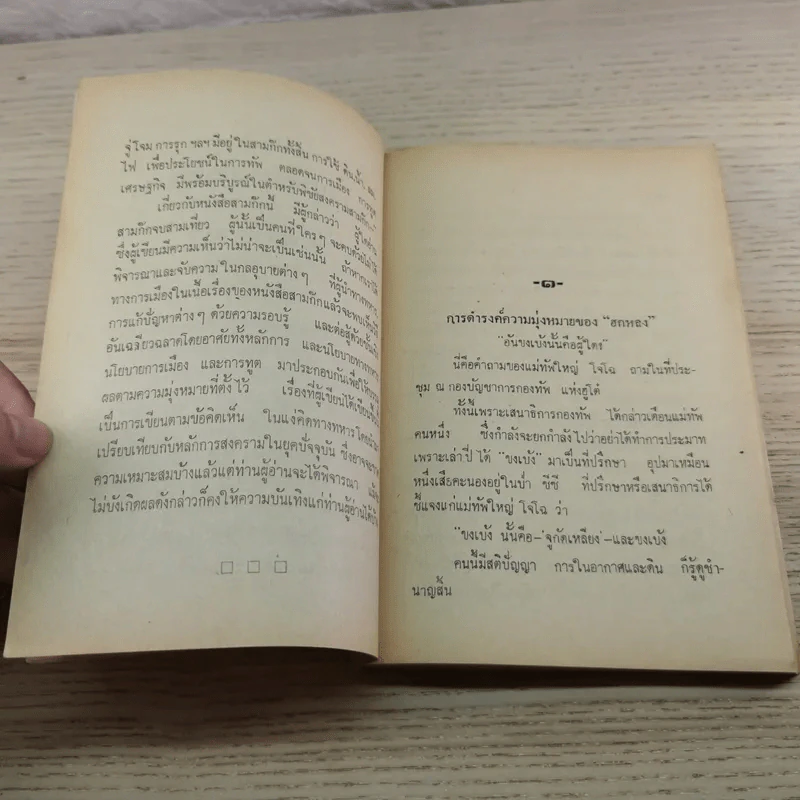 จู่โจม การรุก ฯลฯ มีอยู่ในสามก๊กทั้งสิ้น การใช้ ดิน, น้ำ,
ไฟ เพื่อประโยชน์ในการทัพ ตลอดจนการเมือง
เศรษฐกิจ มีพร้อมบริบูรณ์ในตำหรับพิชัยสงครามสามก๊ก
เกี่ยวกับหนังสือสามก๊กนี้ มีผู้กล่าวว่า
สามก๊กจบสามเที่ยว ผู้นั้นเป็นคนที่ใครๆ จะคบด้วยไม่ได้
ซึ่งผู้เขียนมีความเห็นว่าไม่น่าจะเป็นเช่นนั้น
พิจารณาและจับความในกลอุบายต่างๆ ที่ผู้นำทาง
ทางการเมืองในเนื้อเรื่องของหนังสือสามก๊กแล้วจะพบ
การแก้ปัญหาต่างๆ ด้วยความรอบรู้ และต่อสู้ด้วย
อันเฉลียวฉลาดโดยอาศัยทั้งหลักการ และนโยบายทาง
นโยบายการเมือง และการทูต มาประกอบกันเพื่อให้
ผลตามความมุ่งหมายที่ตั้งไว้ เรื่องที่ผู้เขียนได้เขียน
เป็นการเขียนตามข้อคิดเห็น ในแง่คิดทางทหารโดย
เปรียบเทียบกับหลักการสงครามในยุคปัจจุบัน ซึ่งอาจจะ
ความเหมาะสมบ้างแล้วแต่ท่านผู้อ่านจะได้พิจารณา
ไม่บังเกิดผลดังกล่าวก็คงให้ความบันเทิงแก่ท่านผู้อ่านได้บ้าง
-๑-
การดำรงค์ความมุ่งหมายของ "ฮกหลง"
"อันขงเบ้งนั้นคือผู้ใคร"
นี่คือคำถามของแม่ทัพใหญ่ โจโฉ ถามในที่ประ-
ชุม ณ กองบัญชาการกองทัพ แห่งฮูโต๋
ทั้งนี้เพราะเสนาธิการกองทัพ ได้กล่าวเตือนแม่ทัพ
คนหนึ่ง ซึ่งกำลังจะยกกำลังไปว่าอย่าได้ทำการประมาท
เพราะเล่าปี่ ได้ "ขงเบ้ง" มาเป็นที่ปรึกษา อุปมาเหมือน
หนึ่งเสือคะนองอยู่ในป่า ชีซี ที่ปรึกษาหรือเสนาธิการได้
ชี้แจงแก่แม่ทัพใหญ่ โจโฉ ว่า
"ขงเบ้ง นั้นคือ-'จูกัดเหลียง'-และขงเบ้ง
คนนี้มีสติปัญญา การในอากาศและดิน ก็รู้ดูชำ-
นาญสิ้น